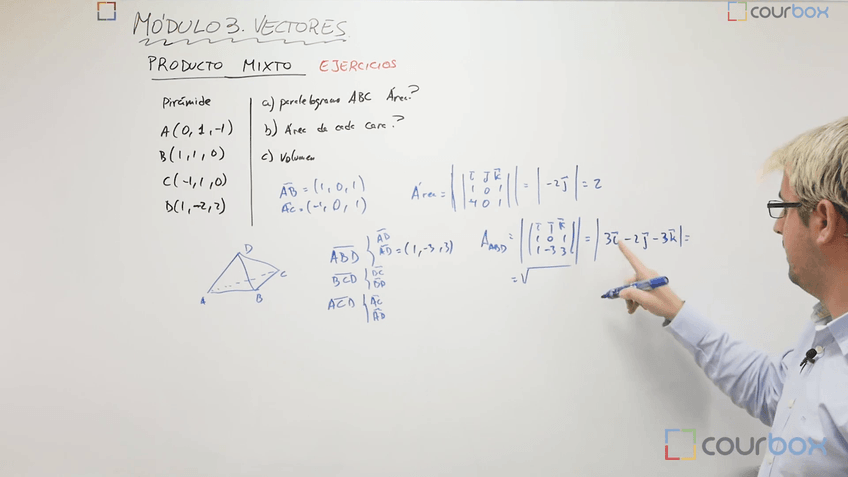 courbox
MÓDULO 3. VECTORES
PRODUCTO MIXTO EJERCICIOS
Pirámide
A(0, 1, -1)
B(1, 1, 0)
C(-1, 1, 0)
D(1, -2, 2)
a) paralelogramo ABC Área?
b) Área de cada cara?
c) Volumen
AB = (1, 0, 1)
AC = (-1, 0, 1)
Área = | | i j k
1 0 1
-1 0 1 | | = | -2j | = 2
D
A
B
C
ABD { AB
AD = (1, -3, 3)
BCD { BC
BD
ACD { AC
AD
A ABD = | | i j k
1 0 1
1 -3 3 | | = | 3i - 2j - 3k | =
= √
courbox